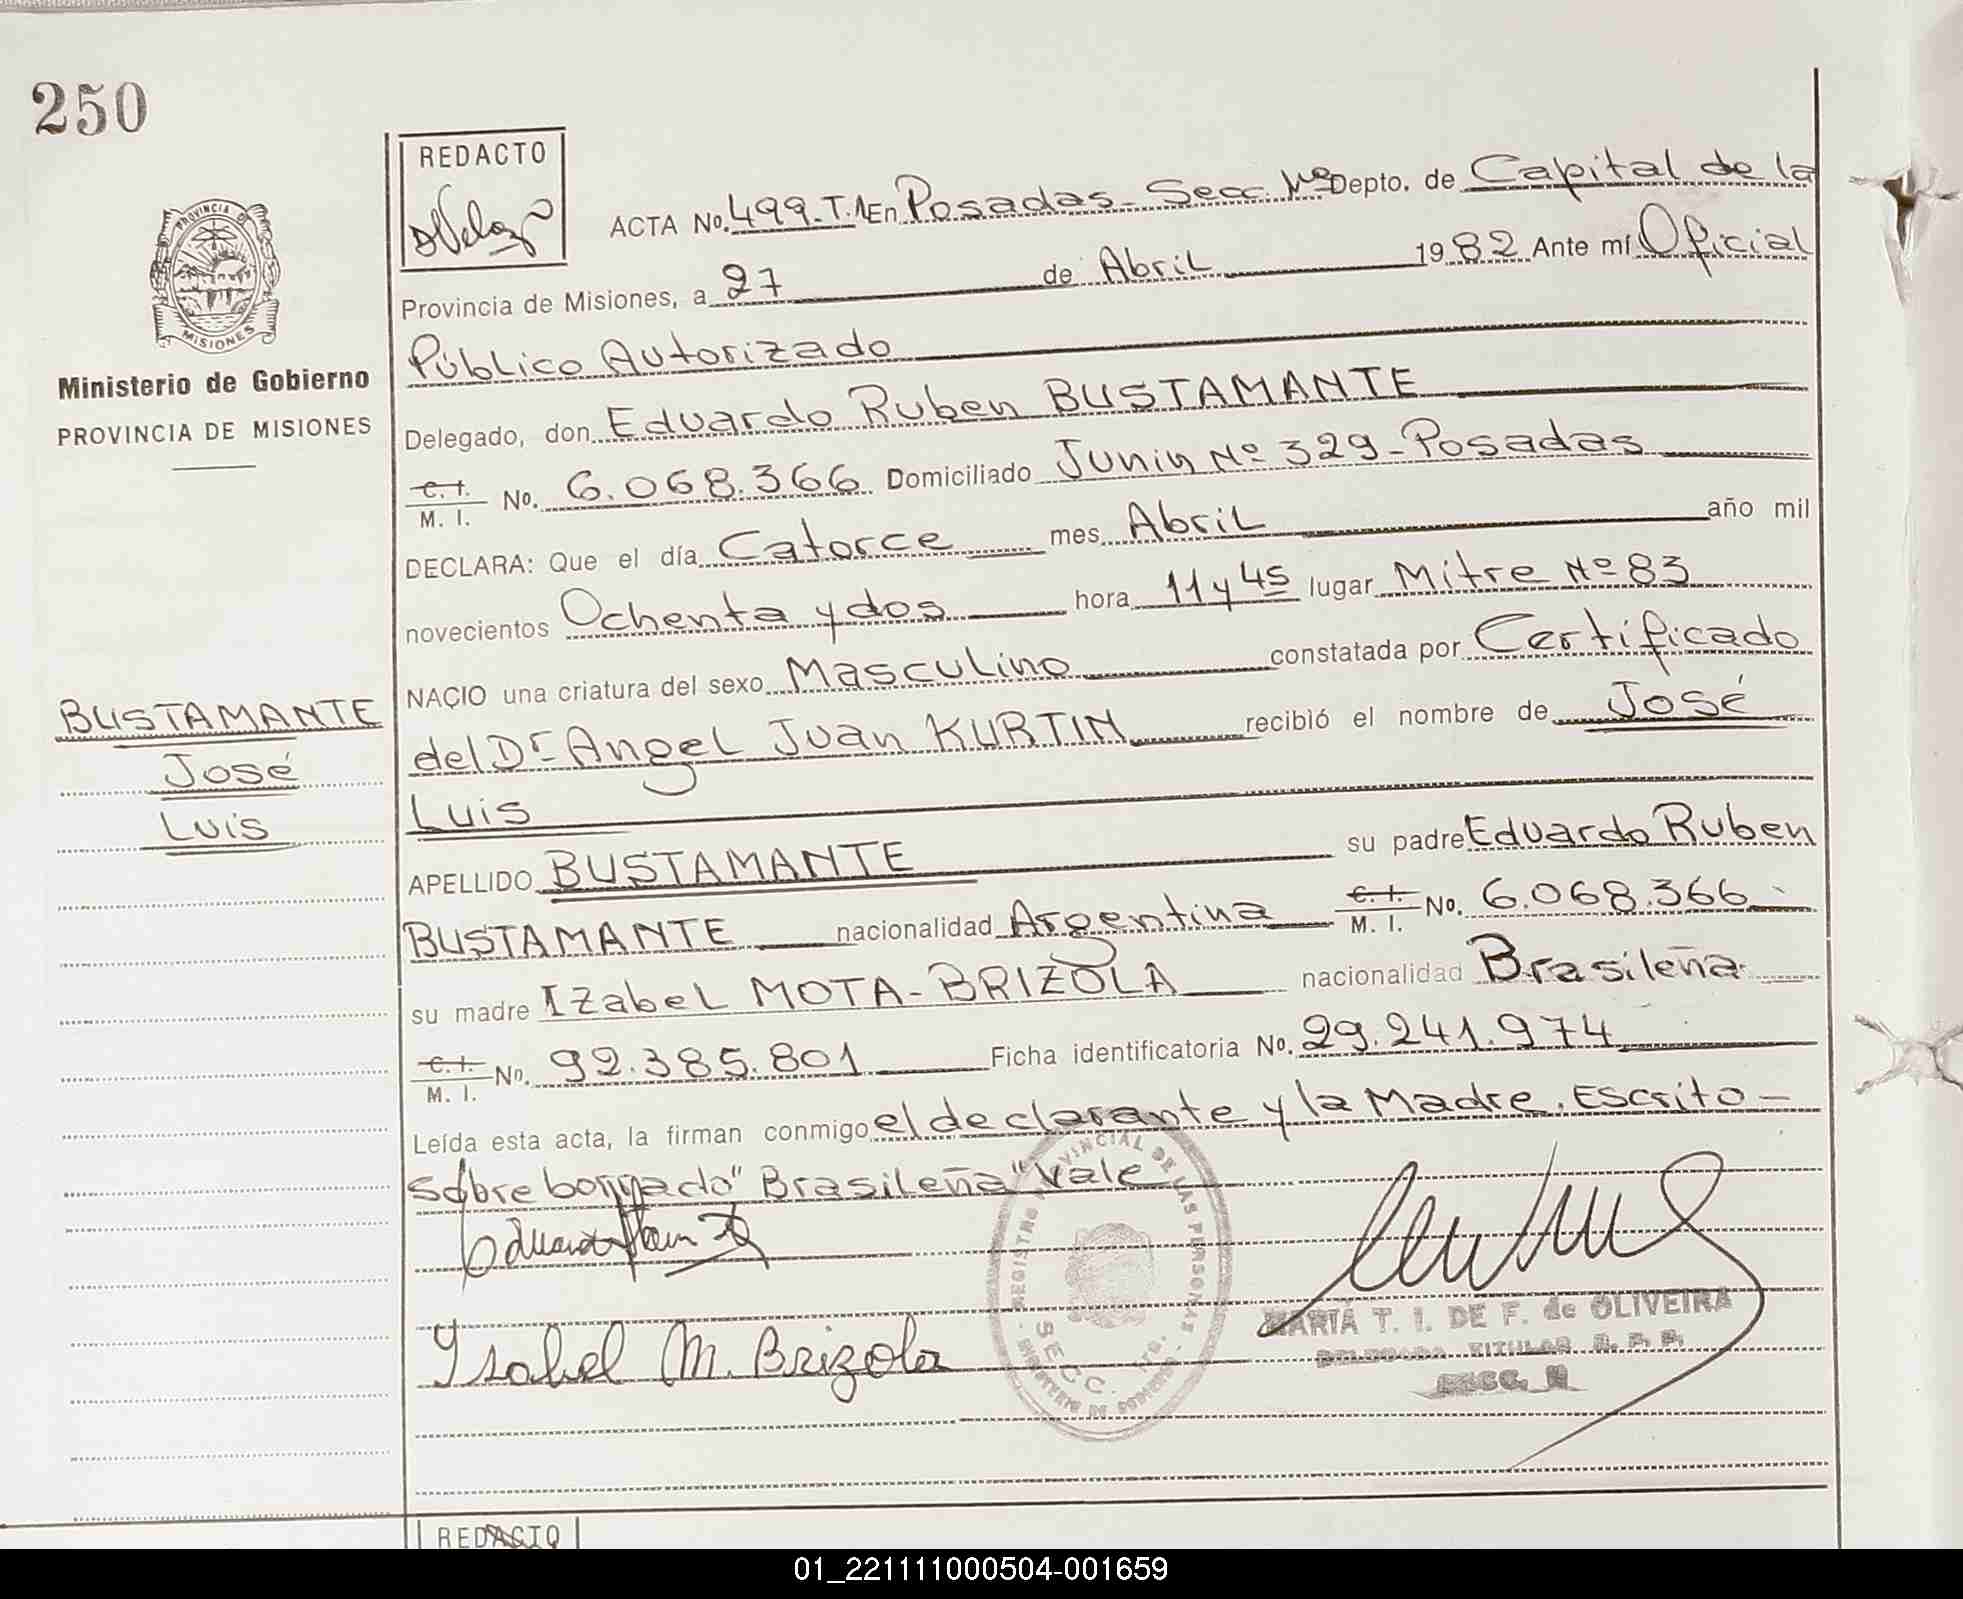 250
REDACTO
ACTA No. 499-T.1 En Posadas - Secc. Nº Depto. de Capital de la
Provincia de Misiones, a 27 de Abril 1982 Ante mí Oficial
Público Autorizado
Delegado, don Eduardo Ruben BUSTAMANTE
C. I. / M. I. No. 6.068.366 Domiciliado Junin Nº 329 - Posadas
DECLARA: Que el día Catorce mes Abril año mil
novecientos Ochenta y dos hora 11 y 45 lugar Mitre Nº 83
NACIO una criatura del sexo Masculino constatada por Certificado
del Dr. Angel Juan KURTIN recibió el nombre de José
Luis
APELLIDO BUSTAMANTE su padre Eduardo Ruben
BUSTAMANTE nacionalidad Argentina C. I. / M. I. No. 6.068.366
su madre Izabel MOTA-BRIZOLA nacionalidad Brasileña
C. I. / M. I. No. 92.385.801 Ficha identificatoria No. 29.241.974
Leída esta acta, la firman conmigo el declarante y la Madre. Escrito -
sobre borrado "Brasileña" Vale
Ysabel M. Brizola
PROVINCIA DE MISIONES
Ministerio de Gobierno
PROVINCIA DE MISIONES
BUSTAMANTE
José
Luis
REGISTRO PROVINCIAL DE LAS PERSONAS - MINISTERIO DE GOBIERNO
SECC.
MARÍA T. I. DE F. de OLIVEIRA
TITULAR
SECC.
REDACTO
01_221111000504-001659